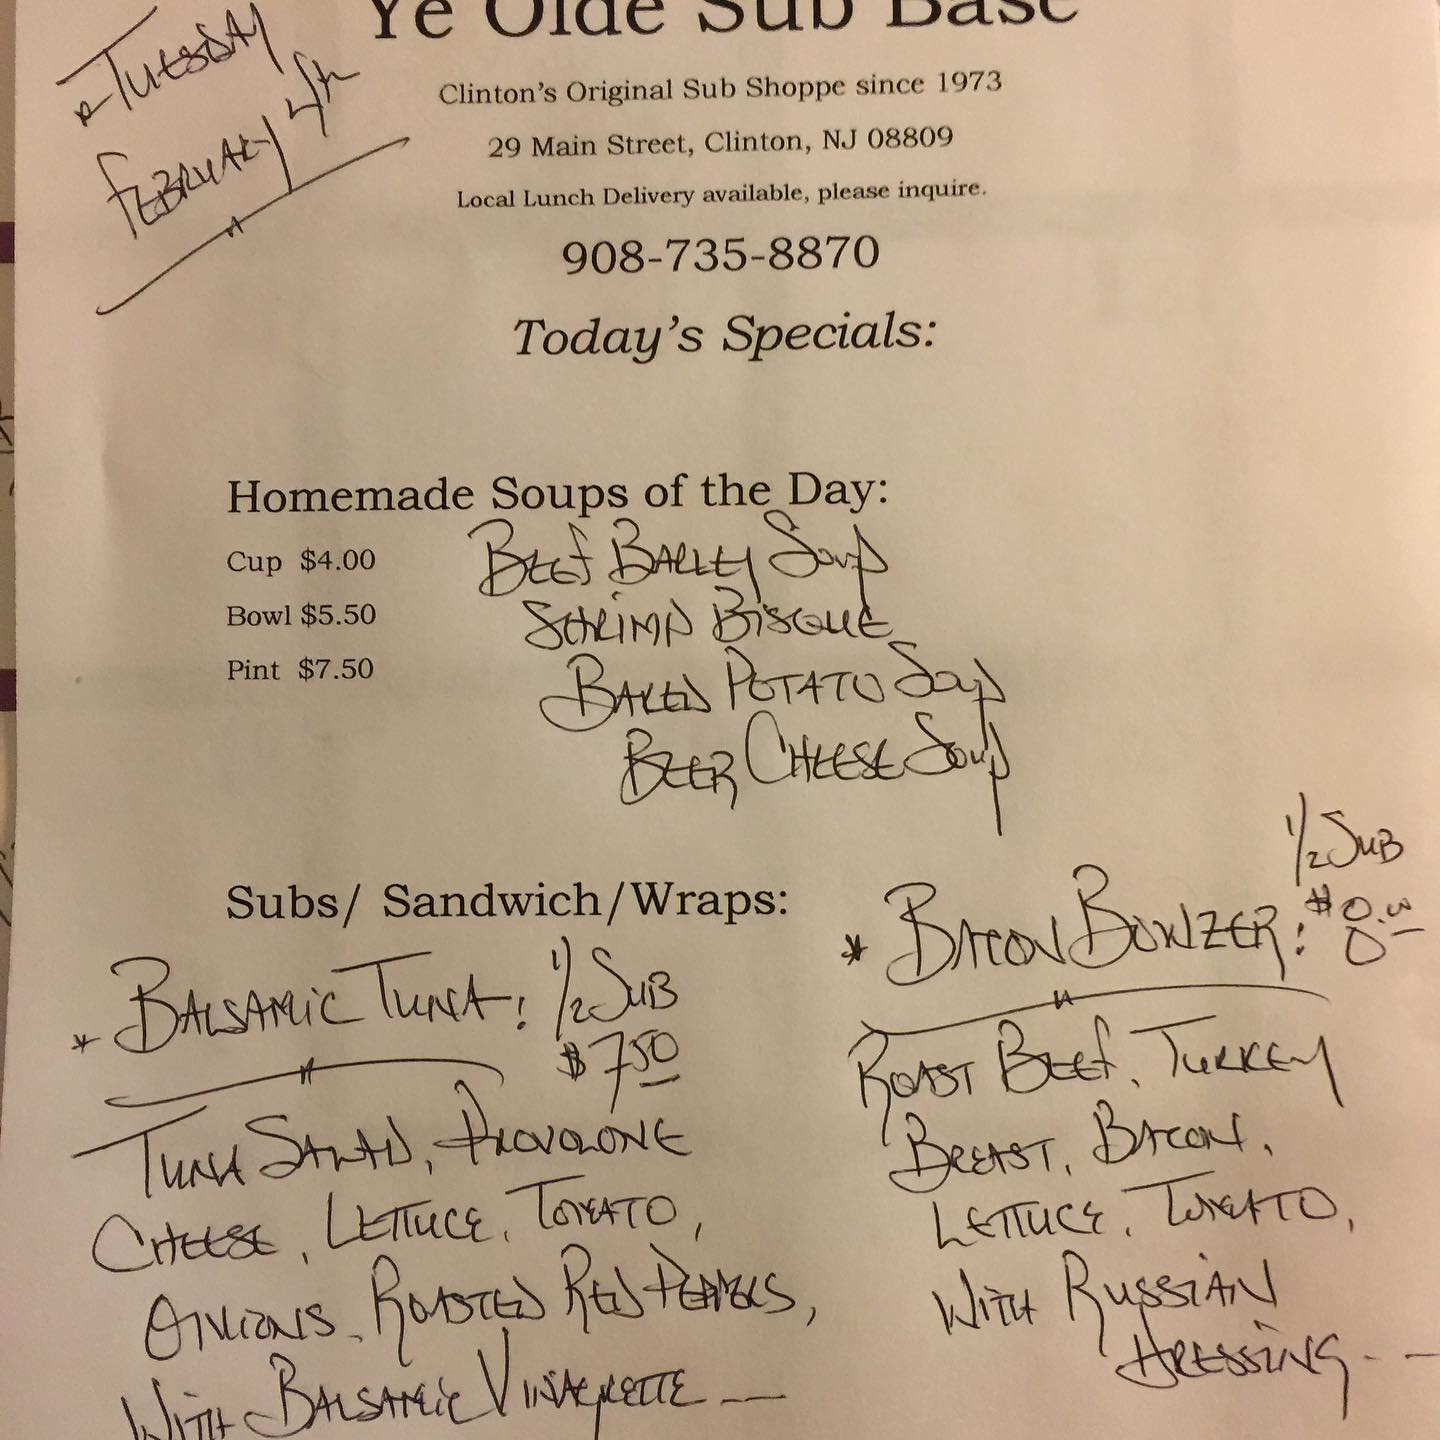 Ye Olde Sub Base
Tuesday
February 4th
Clinton's Original Sub Shoppe since 1973
29 Main Street, Clinton, NJ 08809
Local Lunch Delivery available, please inquire.
908-735-8870
Today's Specials:
Homemade Soups of the Day:
Cup $4.00
Bowl $5.50
Pint $7.50
Beef Barley Soup
Shrimp Bisque
Baked Potato Soup
Beer Cheese Soup
Subs/ Sandwich/Wraps:
* Balsamic Tuna: 1/2 Sub
$7.50
Tuna Salad, Provolone
Cheese, Lettuce, Tomato,
Onions, Roasted Red Peppers,
With Balsamic Vinagrette ---
* Bacon Bowzer: 1/2 Sub
$8.00
Roast Beef, Turkey
Breast, Bacon,
Lettuce, Tomato,
With Russian
Dressing - --